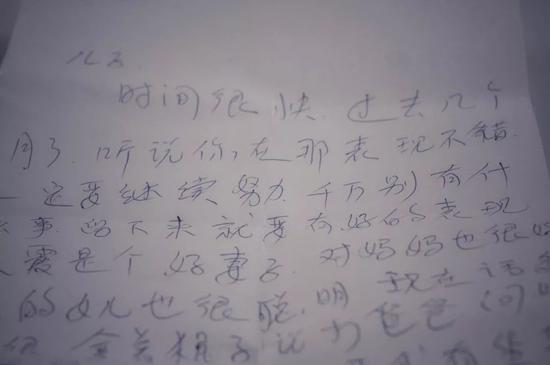 儿子
时间很快.过去几个
月了.听说你在那表现不错.
一定要继续努力.千万别有什
事.留下来就要有好的表现
霞是个好妻子.对妈妈也很好
的女儿也很聪明 现在话
爸爸